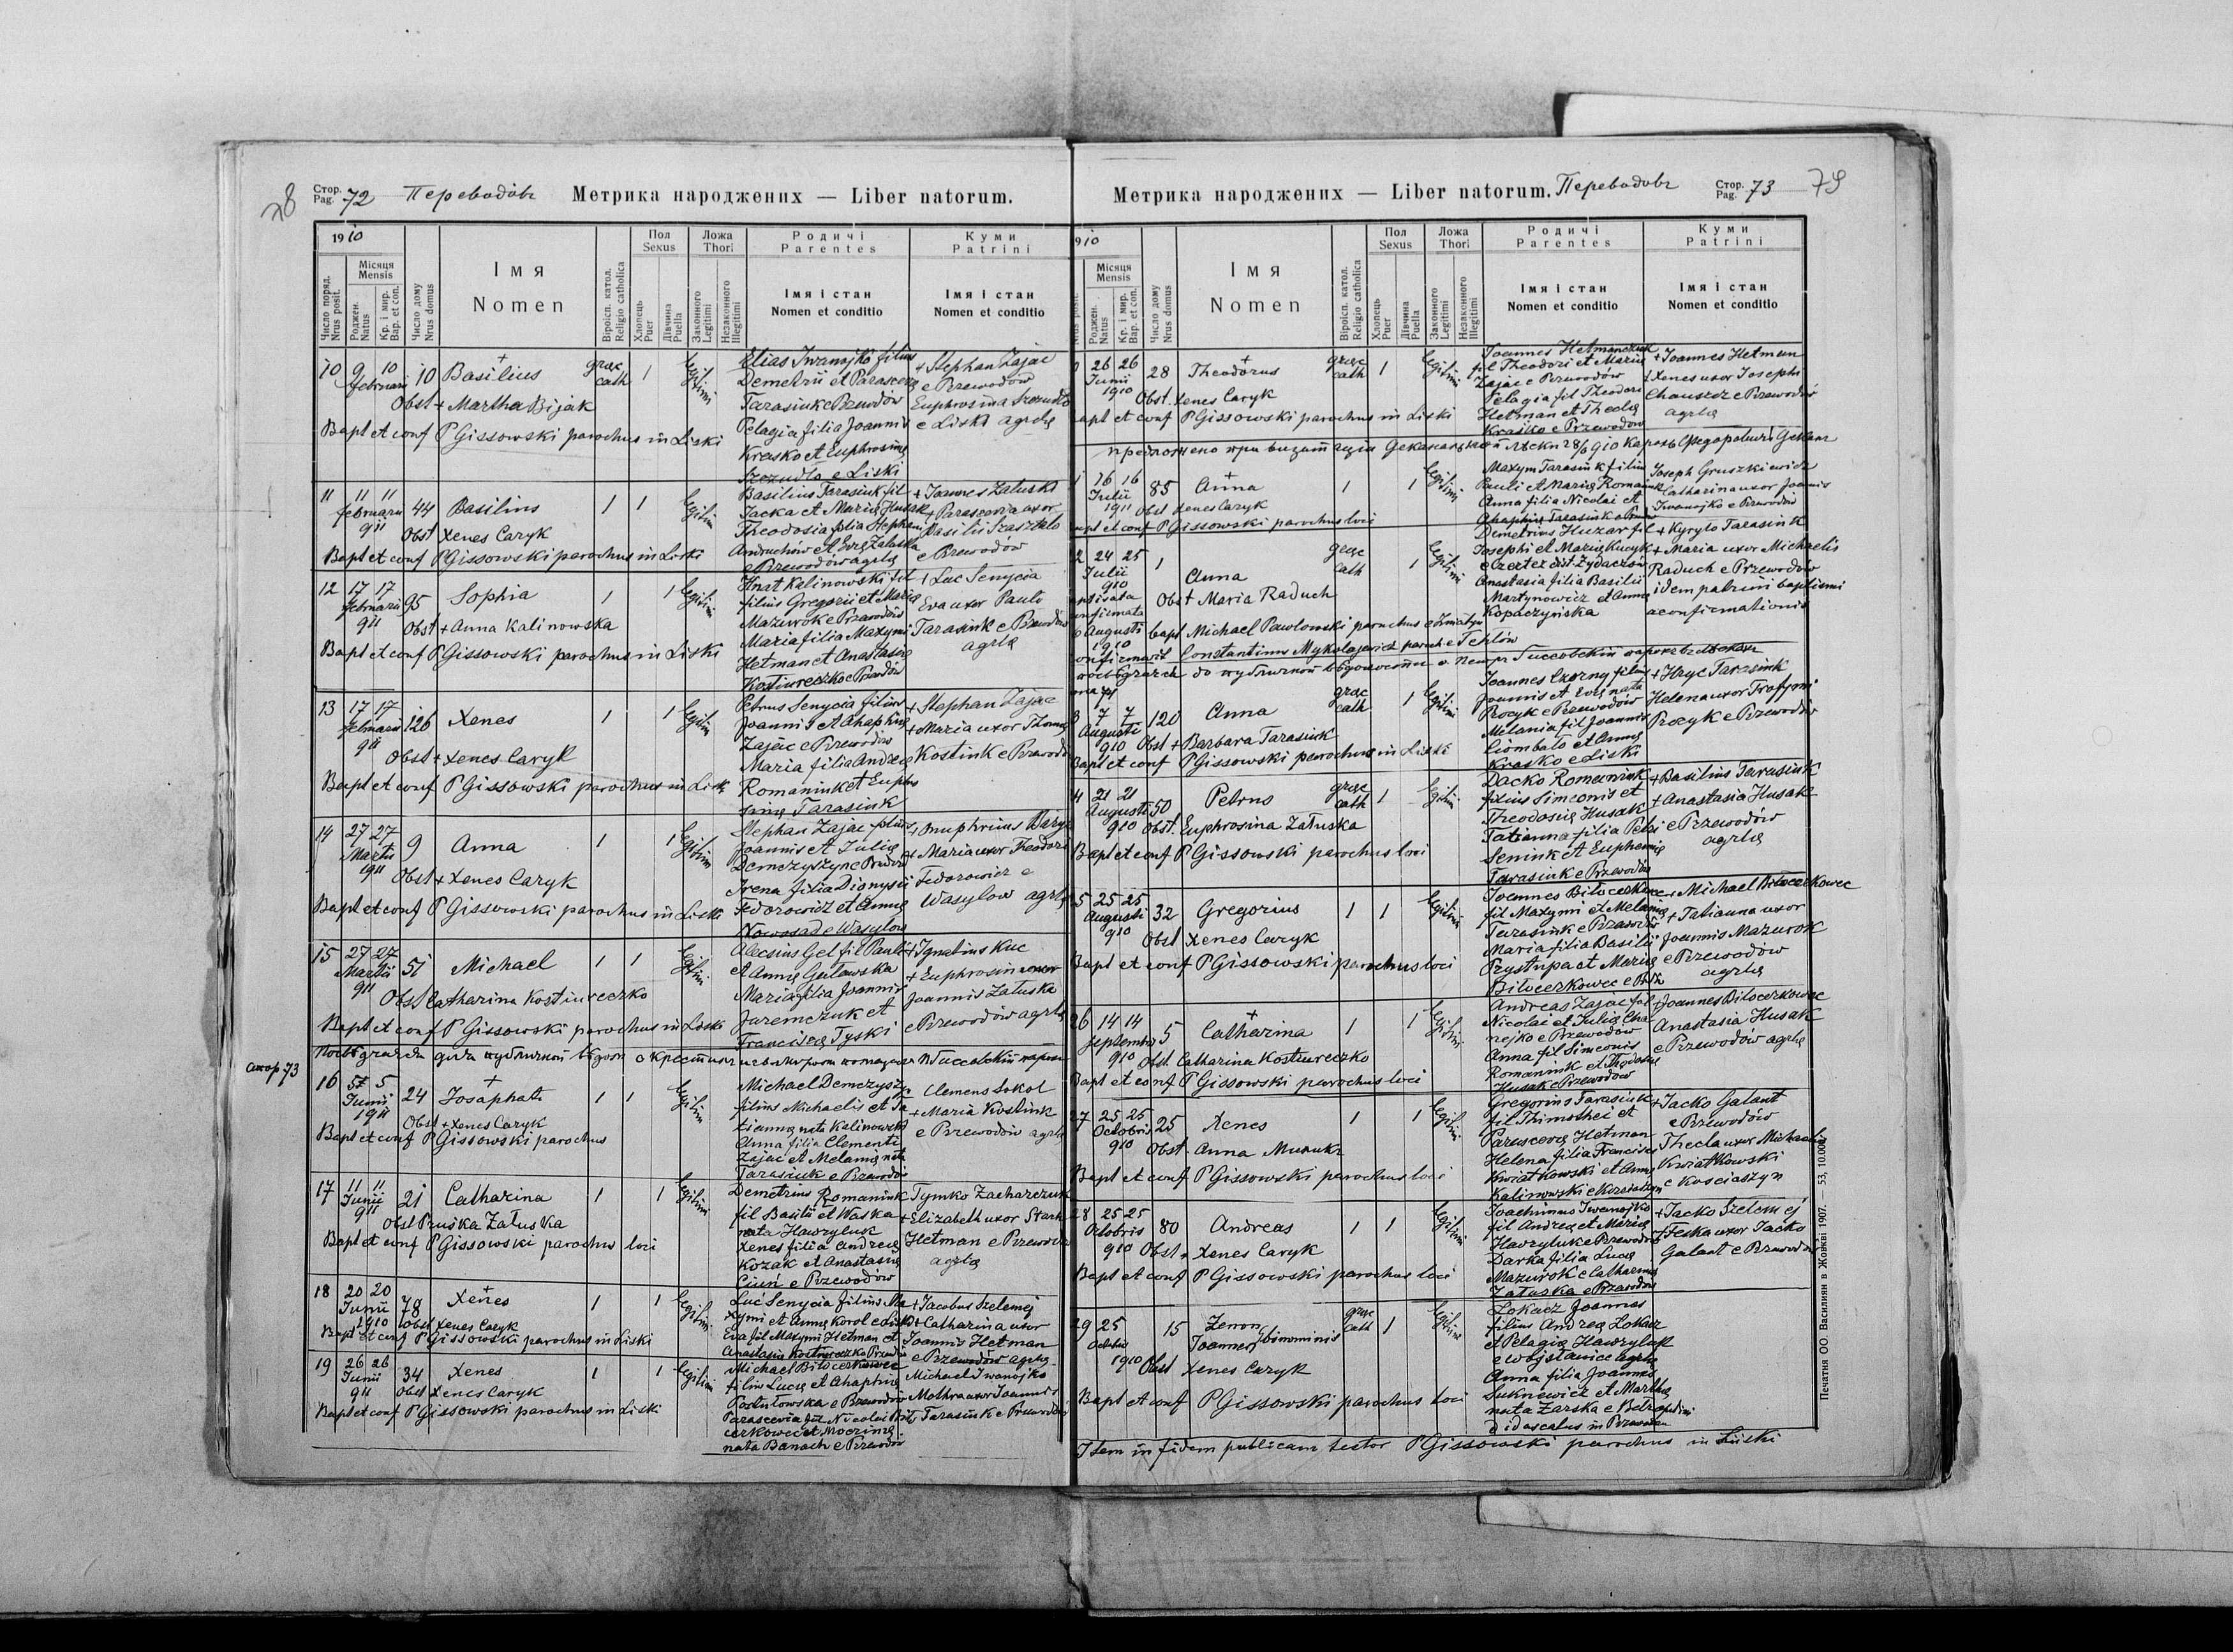 78
Стор. Pag. 72 Переводôвъ Метрика народжених — Liber natorum.
1910
Число поряд. Nrus posit.
Місяця Mensis
Роджен. Natus
Кр. і мир. Bap. et con.
Число дому Nrus domus
Імя Nomen
Віроісп. катол. Religio catholica
Пол Sexus
Хлопець Puer
Дівчина Puella
Ложа Thori
Законного Legitimi
Незаконного Illegitimi
Родичі Parentes
Імя і стан Nomen et conditio
Куми Patrini
Імя і стан Nomen et conditio
10 9 10 februarii 10 Basilius graec cath 1 legitimi
Elias Iwanojko filius
Demetrii et Parasceva
Tarasiuk e Przewodów
Pelagia filia Joannis
Krasko et Euphrosina
Szczudło e Liski
+ Stephan Zajac
e Przewodów
Euphrosina Szczudło
e Liski agrlę
Obst + Martha Bijak
Bapt et conf P Gissowski parochus in Liski
11 11 11 februarii 911 44 Basilius 1 1 legitimi
Basilius Tarasiuk fil
Jacka et Maria Husak
Theodosia filia Stephani
Andruchów et Eva Załuska
e Przewodów agrlę
+ Joannes Załuska
+ Parascevia uxor
Basilii
e Przewodów
Obst Xenes Caryk
Bapt et conf P Gissowski parochus in Liski
12 17 17 februarii 911 95 Sophia 1 1 legitimi
Hnat Kalinowski fil
filius Gregorii et Maria
Mazurok e Przewodów
Maria filia Maxymi
Hetman et Anastasia
Kostiureczko e Przewodów
+ Luc Senycia
Eva uxor Pauli
Tarasiuk e Przewodów
agrlę
Obst + Anna Kalinowska
Bapt et conf P Gissowski parochus in Liski
13 17 17 februarii 911 126 Xenes 1 1 legitimi
Petrus Senycia filius
Joannis et Ahaphia
Zajac e Przewodów
Maria filia Andrea
Romaniuk et Euphro
sina Tarasiuk
+ Stephan Zajac
+ Maria uxor Thoma
Kostiuk e Przewodów
Obst + Xenes Caryk
Bapt et conf P Gissowski parochus in Liski
14 27 27 Martii 1911 9 Anna 1 1 legitimi
Stephan Zajac filius
Joannis et Julia
Demczyszyn e Przewod
Irena filia Dionysii
Fedorowicz et Anna
Nowosad e Wasylow
+ Onuphrius
+ Maria uxor Theodori
Fedorowicz e
Wasylow agrlę
Obst + Xenes Caryk
Bapt et conf P Gissowski parochus in Liski
15 27 27 Martii 911 51 Michael 1 1 legitimi
Alecsius Gel fil Pauli
et Anna Gutowska
Maria filia Joannis
Jaremczuk et
Francisca Tyski
+ Ignatius Kuc
+ Euphrosina uxor
Joannis Załuska
e Przewodów agrlę
Obst Catharina Kostiureczko
Bapt et conf P Gissowski parochus in Liski
стор 73
16 5 5 Junii 1911 24 Josaphat 1 1 legitimi
Michael Demczyszyn
filius Michaelis et Ta
tianna nata Kalinowska
Anna filia Clementi
Zajac et Melania nata
Tarasiuk e Przewodów
Clemens Sokol
+ Maria Kostiuk
e Przewodów agrlę
Obst + Xenes Caryk
Bapt et conf P Gissowski parochus
17 11 11 Junii 911 21 Catharina 1 1 legitimi
Demetrius Romaniuk
fil Basilii et Waska
nata Hawryluk
Xenes filia Andrea
Kozak et Anastasia
Ciuń e Przewodów
Tymko Zacharczuk
+ Elizabeth uxor
Hetman e Przewodów
agrlę
Obst Pruska Załuska
Bapt et conf P Gissowski parochus loci
18 20 20 Junii 1910 78 Xenes 1 1 legitimi
Luć Senycia filius Ma
xymi et Anna Korol e Liski
Eva fil Maxymi Hetman et
Anastasia Kostiureczko Przewodów
+ Jacobus Szelemej
+ Catharina uxor
Joannis Hetman
e Przewodów agrlę
Obst Xenes Caryk
Bapt et conf P Gissowski parochus in Liski
19 26 26 Junii 911 34 Xenes 1 1 legitimi
Michael Biłoczerkowec
filius Luca et Ahaphia
Postułowska e Przewodów
Parascevia fil Nicolai Biło
czerkowec et
nata Banach e Przewodów
Michael Iwanojko
Mothra uxor Joannis
Tarasiuk e Przewodów
Obst Xenes Caryk
Bapt et conf P Gissowski parochus in Liski
Метрика народжених — Liber natorum. Переводôвъ Стор. Pag. 73 79
910
Nrus posit.
Місяця Mensis
Роджен. Natus
Кр. і мир. Bap. et con.
Число дому Nrus domus
Імя Nomen
Віроісп. катол. Religio catholica
Пол Sexus
Хлопець Puer
Дівчина Puella
Ложа Thori
Законного Legitimi
Незаконного Illegitimi
Родичі Parentes
Імя і стан Nomen et conditio
Куми Patrini
Імя і стан Nomen et conditio
26 26 Junii 1910 28 Theodorus graec cath 1 legitimi
Joannes Hetmanczuk
fil Theodori et Maria
Zajac e Przewodów
Pelagia fil Theodori
Hetman et Thecla
Krasko e Przewodów
+ Joannes Hetman
+ Xenes uxor Josephi
e Przewodów
agrlę
Obst. Xenes Caryk
Bapt et conf P Gissowski parochus in Liski
1 16 16 Julii 1911 85 Anna 1 1 legitimi
Maxym Tarasiuk filius
Pauli et Maria Romaniuk
Anna filia Nicolai et
Ahaphia Tarasiuk e Przew
Joseph Gruszkiewicz
Catharina uxor Joannis
Iwanojko e Przewodów
Obst Xenes Caryk
Bapt et conf P Gissowski parochus loci
2 24 25 Julii 910 1 Anna graec cath 1 legitimi
Demetrius Huzar fil
Josephi et Maria Kucyk
e Czertez dist. Żydaczów
Anastasia filia Basilii
Martynowicz et Anna
Kopaczyńska
+ Kyryło Tarasiuk
+ Maria uxor Michaelis
Raduch e Przewodów
idem patrini baptismi
ac confirmationis
Obst Maria Raduch
6 Augusti 1910 bapt Michael Pawłowski parochus e Żniatyn
confirmavit Constantinus Mykołajewicz paroch e Tehlów
3 7 7 Augusti 910 120 Anna graec cath 1 legitimi
Joannes Czorny filius
Joannis et Eva nata
Procyk e Przewodów
Melania fil Joannis
Ciombało et Anna
Krasko e Liski
+ Hryc Tarasiuk
Helena uxor Trofymi
Procyk e Przewodów
Obst + Barbara Tarasiuk
Bapt et conf P Gissowski parochus in Liski
4 21 21 Augusti 910 50 Petrus graec cath 1 legitimi
Dacko Romaniuk
filius Simeonis et
Theodosia Husak
Tatianna filia Petri
Seniuk et Euphemia
Tarasiuk e Przewodów
+ Basilius Tarasiuk
+ Anastasia Husak
e Przewodów
agrlę
Obst. Euphrosina Załuska
Bapt et conf P Gissowski parochus loci
5 25 25 Augusti 910 32 Gregorius 1 1 legitimi
Joannes Biłoczerkowec
fil Maxymi et Melania
Tarasiuk e Przewodów
Maria filia Basilii
Prystupa et Maria
Biłoczerkowec e Przew
+ Michael Biłoczerkowec
+ Tatianna uxor
Joannis Mazurok
e Przewodów
agrlę
Obst Xenes Caryk
Bapt et conf P Gissowski parochus loci
26 14 14 Septembris 910 5 Catharina 1 1 legitimi
Andreas Zajac fil
Nicolai et Julia Cha
nejko e Przewodów
Anna fil Simeonis
Romaniuk et Theodosia
Husak e Przewodów
+ Joannes Biłoczerkowec
Anastasia Husak
e Przewodów agrlę
Obst. Catharina Kostiureczko
Bapt et conf P Gissowski parochus loci
27 25 25 Octobris 910 25 Xenes 1 1 legitimi
Gregorius Tarasiuk
fil Thimothei et
Parascevia Hetman
Helena filia Francisci
Kwiatkowski et Anna
Kalinowski e Kosciaszyn
+ Jacko Galant
e Przewodów
Thecla uxor Michaelis
Kwiatkowski
e Kosciaszyn
Obst. Anna
Bapt et conf P Gissowski parochus loci
28 25 25 Octobris 910 80 Andreas 1 1 legitimi
Joachimus Iwanojko
fil Andrea et Maria
Hawryluk e Przewodów
Darka filia Luca
Mazurok e Catharina
Załuska e Przewodów
+ Jacko Szelemej
+ Feska uxor Jacko
Galant e Przewodów
Obst + Xenes Caryk
Bapt et conf P Gissowski parochus loci
29 25 Octobris 1910 15 Zenon Joannes binominis graec cath 1 legitimi
Łokacz Joannes
filius Andrea Łokacz
et Pelagia Hawryluk
e Wojsławice agrlę
Anna filia Joannis
Suknewicz et Martha
nata Zarska e Betz oppidini
didascalus in Przewodów
Obst Xenes Caryk
Bapt et conf P Gissowski parochus loci
Item in fidem publicam testor P Gissowski parochus in Liski
Печатня ОО. Василиян в Жовкві 1907. — 53, 10.000.